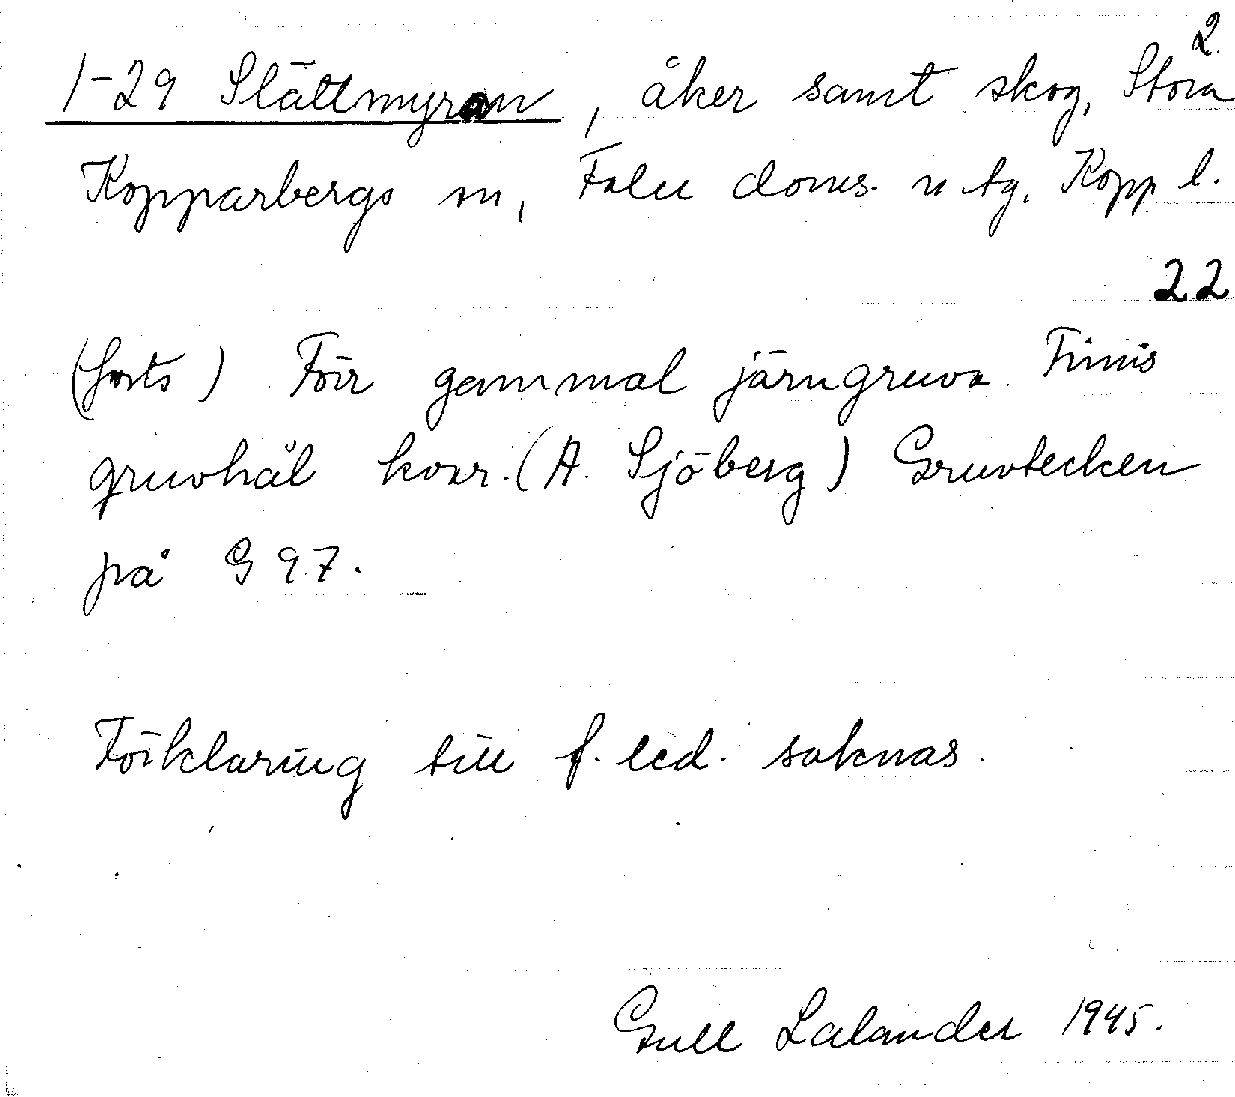 2.
1-29 Slättmyran, åker samt skog, Stora
Kopparbergs sn, Falu doms. u tg. Kopp l.
22
(forts) För gammal järngruva. Finns
gruvhål kvar. (A. Sjöberg) Gruvtecken
på G 97.
Förklaring till f. led. saknas.
Gull Lalander 1945.